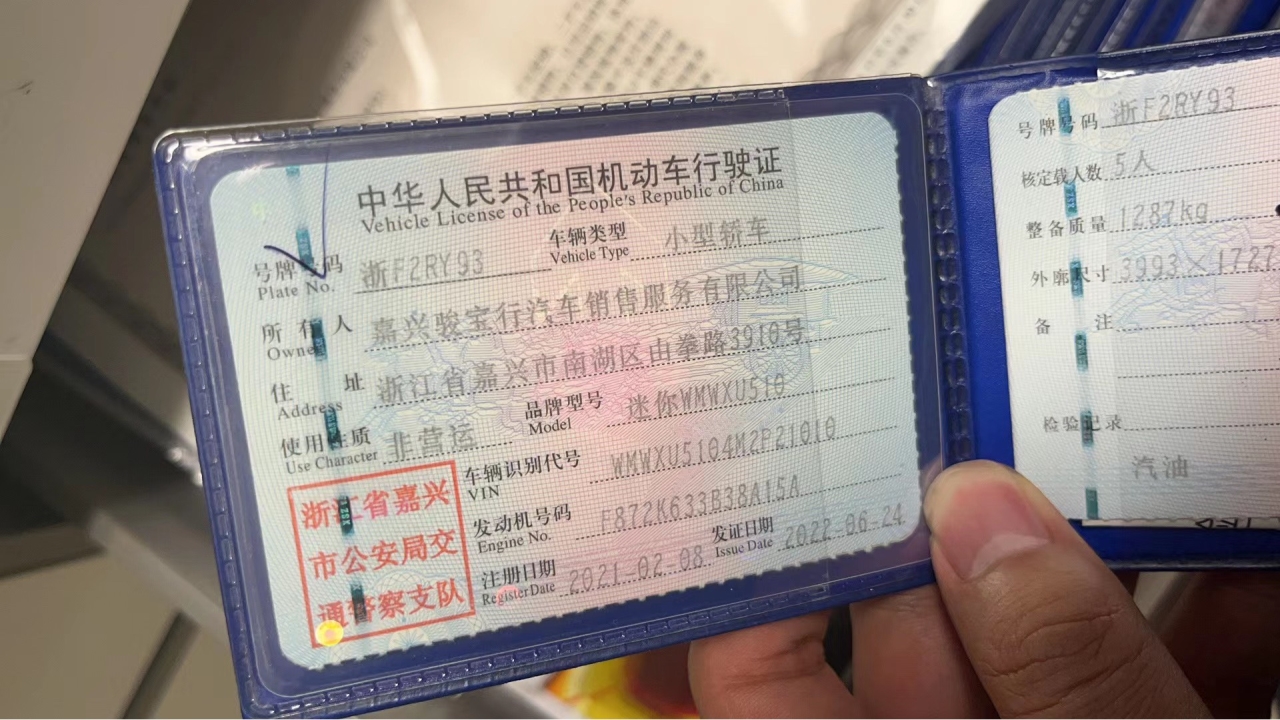 中华人民共和国机动车行驶证
Vehicle License of the People's Republic of China
号牌号码 浙F2RY93 车辆类型 小型轿车
Plate No. Vehicle Type
所有人 嘉兴骏宝行汽车销售服务有限公司
Owner
住址 浙江省嘉兴市南湖区由拳路3910号
Address
使用性质 非营运 品牌型号 迷你WMWXU510
Use Character Model
车辆识别代号 WMWXU5104M2P21010
VIN
发动机号码 F872K633B38A15A
Engine No.
注册日期 2021-02-08 发证日期 2022-06-24
Register Date Issue Date
浙江省嘉兴
市公安局交
通警察支队
号牌号码 浙F2RY93
核定载人数 5人
整备质量 1287kg
外廓尺寸 3993×1727
备注
检验记录
汽油